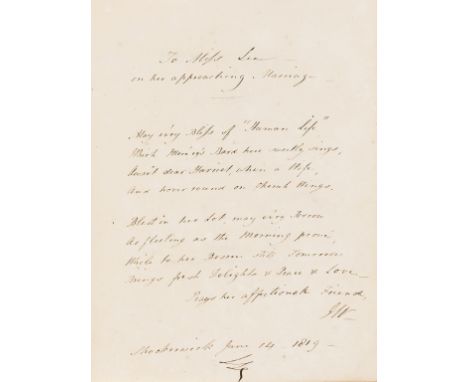 To Miss Lee —
on her approaching Marriage —
May e'ery Bliss of "Human Life"
Which Mem'ry's Bard sweetly sings,
Await dear Harriet, when a Wife,
And hover round on Cherub Wings.
Blest in her Lot may e'ery Sorrow
As fleeting as the Morning prove,
While to her Bosom Tomorrow
Brings fresh Delights & Peace & Love —
Prays her affectionate Friend,
JW —
Shockerwick June 14 - 1819 -